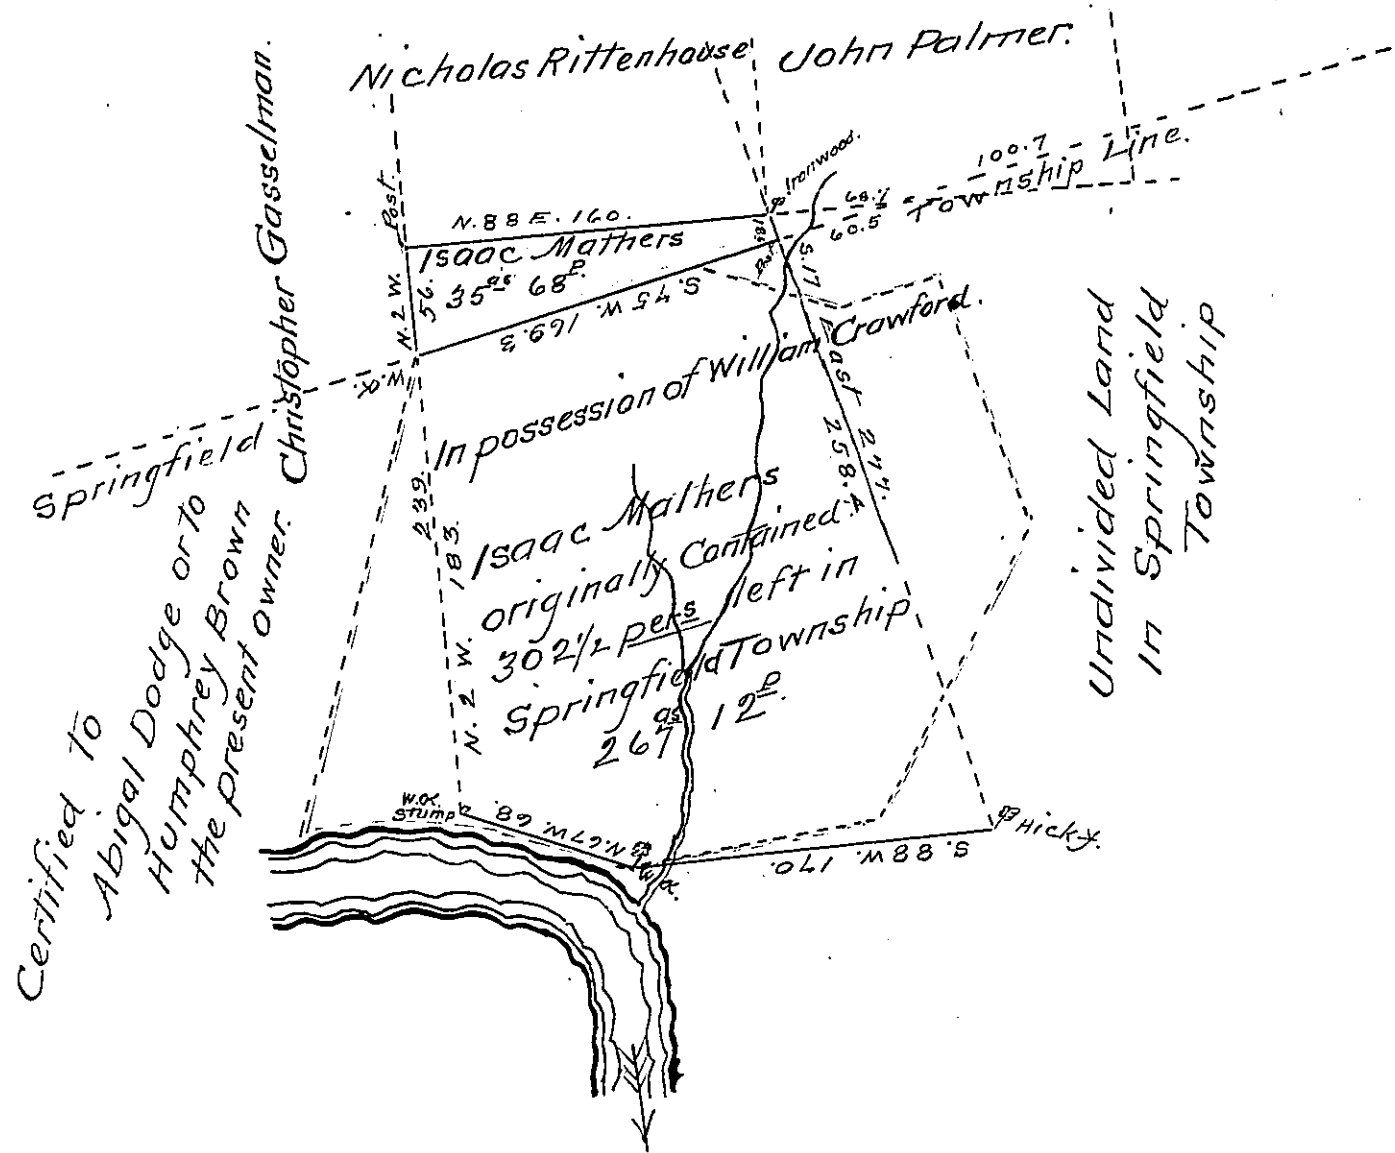 Nicholas Rittenhouse
John Palmer.
Christopher Gasselman.
Post.
Ironwood.
100.7
Township Line.
68.7
60.5
N. 88 E. 160.
Isaac Mathers
35 as 68 P.
N. 2 W.
56.
S. 75 W. 169.3
18.6
Post
S. 17 East 277.
258.4
W. O.
Springfield
In possession of William Crawford.
239.
N. 2 W. 183.
Isaac Mathers
originally Contained
302 1/2 pers left in
Springfield Township
267 as 12 P.
Undivided Land
In Springfield
Township
Certified To
Abigal Dodge or to
Humphrey Brown
the present owner.
W.O.
Stump
N. 67 W. 68.
S. 88 W. 170.
Hick-y.